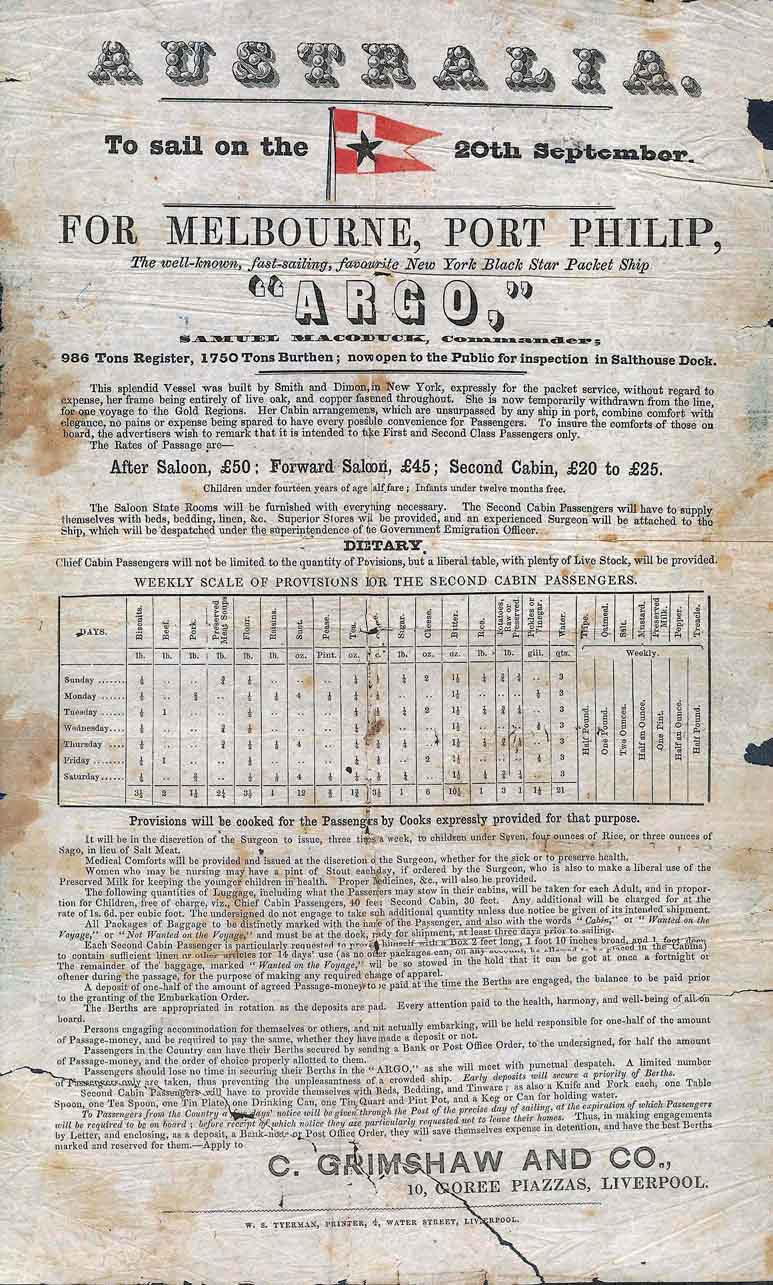 AUSTRALIA.
To sail on the 20th September.
FOR MELBOURNE, PORT PHILIP,
The well-known, fast-sailing, favourite New York Black Star Packet Ship
"ARGO,"
SAMUEL MACODUCK, Commander;
986 Tons Register, 1750 Tons Burthen; now open to the Public for inspection in Salthouse Dock.
This splendid Vessel was built by Smith and Dimon, in New York, expressly for the packet service, without regard to
expense, her frame being entirely of live oak, and copper fasened throughout. She is now temporarily withdrawn from the line,
for one voyage to the Gold Regions. Her Cabin arrangemens, which are unsurpassed by any ship in port, combine comfort with
elegance, no pains or expense being spared to have every posible convenience for Passengers. To insure the comforts of those on
board, the advertisers wish to remark that it is intended to take First and Second Class Passengers only.
The Rates of Passage are—
After Saloon, £50; Forward Saloon, £45; Second Cabin, £20 to £25.
Children under fourteen years of age half fare; Infants under twelve months free.
The Saloon State Rooms will be furnished with everything necessary. The Second Cabin Passengers will have to supply
themselves with beds, bedding, linen, &c. Superior Stores will be provided, and an experienced Surgeon will be attached to the
Ship, which will be despatched under the superintendence of the Government Emigration Officer.
DIETARY.
Chief Cabin Passengers will not be limited to the quantity of Provisions, but a liberal table, with plenty of Live Stock, will be provided.
WEEKLY SCALE OF PROVISIONS FOR THE SECOND CABIN PASSENGERS.
DAYS. Biscuits. Beef. Pork. Preserved Meat Soups Flour. Raisins. Suet. Pease. Tea. Sugar. Cheese. Butter. Rice. Potatoes, Raw or Preserved. Pickles or Vinegar. Water. Tripe. Oatmeal. Salt. Mustard. Preserved Milk. Pepper. Treacle.
lb. lb. lb. lb. lb. lb. oz. Pint. oz. lb. oz. oz. lb. lb. gill. qts. Weekly.
Sunday
Monday
Tuesday
Wednesday
Thursday
Friday
Saturday
Half Pound. One Pound. Two Ounces. Half an Ounce. One Pint. Half an Ounce. Half Pound.
3½ 2 1½ 2¼ 3½ 1 12 1 6 10½ 1 3 1 1½ 21
Provisions will be cooked for the Passengers by Cooks expressly provided for that purpose.
It will be in the discretion of the Surgeon to issue, three times a week, to children under Seven, four ounces of Rice, or three ounces of
Sago, in lieu of Salt Meat.
Medical Comforts will be provided and issued at the discretion of the Surgeon, whether for the sick or to preserve health.
Women who may be nursing may have a pint of Stout each day, if ordered by the Surgeon, who is also to make a liberal use of the
Preserved Milk for keeping the younger children in health. Proper Medicines, &c., will also be provided.
The following quantities of Luggage, including what the Passengers may stow in their cabins, will be taken for each Adult, and in propor-
tion for Children, free of charge, viz., Chief Cabin Passengers, 40 feet; Second Cabin, 30 feet. Any additional will be charged for at the
rate of 1s. 6d. per cubic foot. The undersigned do not engage to take such additional quantity unless due notice be given of its intended shipment.
All Packages of Baggage to be distinctly marked with the name of the Passenger, and also with the words "Cabin," or "Wanted on the
Voyage," or "Not Wanted on the Voyage," and must be at the dock, ready for shipment, at least three days prior to sailing.
Each Second Cabin Passenger is particularly requested to provide himself with a Box 2 feet long, 1 foot 10 inches broad, and 1 foot
to contain sufficient linen or other articles for 14 days' use (as no other packages can, on any be placed in the Cabins)
The remainder of the baggage, marked "Wanted on the Voyage," will be so stowed in the hold that it can be got at once a fortnight or
oftener during the passage, for the purpose of making any required change of apparel.
A deposit of one-half of the amount of agreed Passage-money to be paid at the time the Berths are engaged, the balance to be paid prior
to the granting of the Embarkation Order.
The Berths are appropriated in rotation as the deposits are paid. Every attention paid to the health, harmony, and well-being of all on
board.
Persons engaging accommodation for themselves or others, and not actually embarking, will be held responsible for one-half of the amount
of Passage-money, and be required to pay the same, whether they have made a deposit or not.
Passengers in the Country can have their Berths secured by sending a Bank or Post Office Order, to the undersigned, for half the amount
of Passage-money, and the order of choice properly allotted to them.
Passengers should lose no time in securing their Berths in the "ARGO," as she will meet with punctual despatch. A limited number
of Passengers only are taken, thus preventing the unpleasantness of a crowded ship. Early deposits will secure a priority of Berths.
Second Cabin Passengers will have to provide themselves with Beds, Bedding, and Tinware; as also a Knife and Fork each, one Table
Spoon, one Tea Spoon, one Tin Plate, one Drinking Can, one Tin Quart and Pint Pot, and a Keg or Can for holding water.
To Passengers from the Country a days' notice will be given through the Post of the precise day of sailing, at the expiration of which Passengers
will be required to be on board; before receipt of which notice they are particularly requested not to leave their homes. Thus, in making engagements
by Letter, and enclosing, as a deposit, a Bank-note or Post Office Order, they will save themselves expense in detention, and have the best Berths
marked and reserved for them.—Apply to
C. GRIMSHAW AND CO.,
10, GOREE PIAZZAS, LIVERPOOL.
W. S. TYERMAN, PRINTER, 4, WATER STREET, LIVERPOOL.